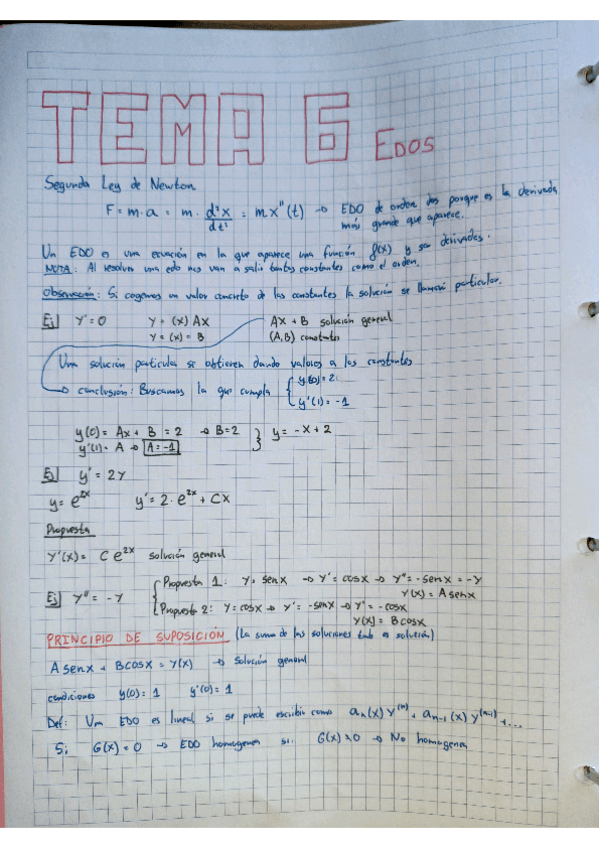 TEMA 6 EDOS
Segunda Ley de Newton
F = m·a = m· d²x/dt² = m x''(t) → EDO de orden dos porque es la derivada
más grande que aparece.
Un EDO es una ecuación en la que aparece una función f(x) y sus derivadas.
NOTA: Al resolver una edo nos van a salir tantas constantes como el orden.
Observación: Si cogemos un valor concreto de las constantes la solución se llamará particular.
Ej| Y''=0 Y = (x) AX AX + B solución general
Y = (x) = B (A,B) constantes
Una solución particular se obtienen dando valores a las constantes
→ conclusión: Buscamos la que cumpla { y(0)=2
y'(1)=-1
y(0)= Ax + B = 2 → B=2 } y = -x + 2
y'(1)= A → A=-1
Ej| y' = 2Y
y= e^2x y' = 2·e^2x + CX
Propuesta
Y'(x)= C e^2x solución general
Ej| Y'' = -Y { Propuesta 1: Y= senx → Y' = cosx → Y''= -senx = -Y
Y(x) = A senx
Propuesta 2: Y= cosx → Y' = -senx → Y''= -cosx
Y(x) = B cosx
PRINCIPIO DE SUPOSICIÓN (La suma de las soluciones tab es solución)
A senx + B cosx = Y(x) → Solución general
condiciones y(0)=1 y'(0)=1
Def: Un EDO es lineal si se puede escribir como an(x) Y^(n) + an-1(x) Y^(n-1) + ...
Si G(x)=0 → EDO homogenea si G(x)≠0 → No homogenea